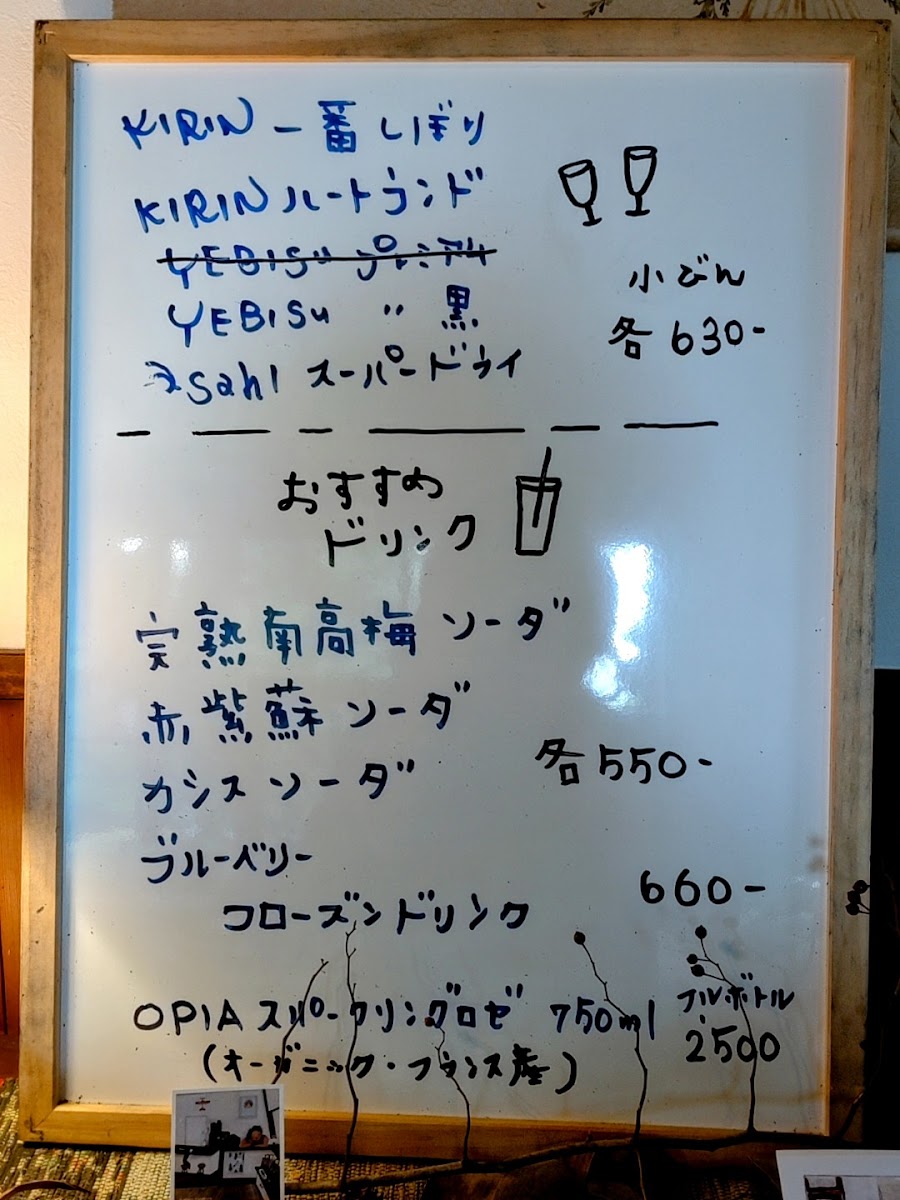 KIRIN 一番しぼり
KIRIN ハートランド
YEBISU プレミアム
YEBISU 〃 黒
Asahi スーパードライ
小びん
各630-
おすすめ
ドリンク
完熟南高梅 ソーダ
赤紫蘇 ソーダ
カシスソーダ
各550-
ブルーベリー
フローズンドリンク
660-
OPIA スパークリングロゼ 750ml フルボトル
(オーガニック・フランス産) 2500